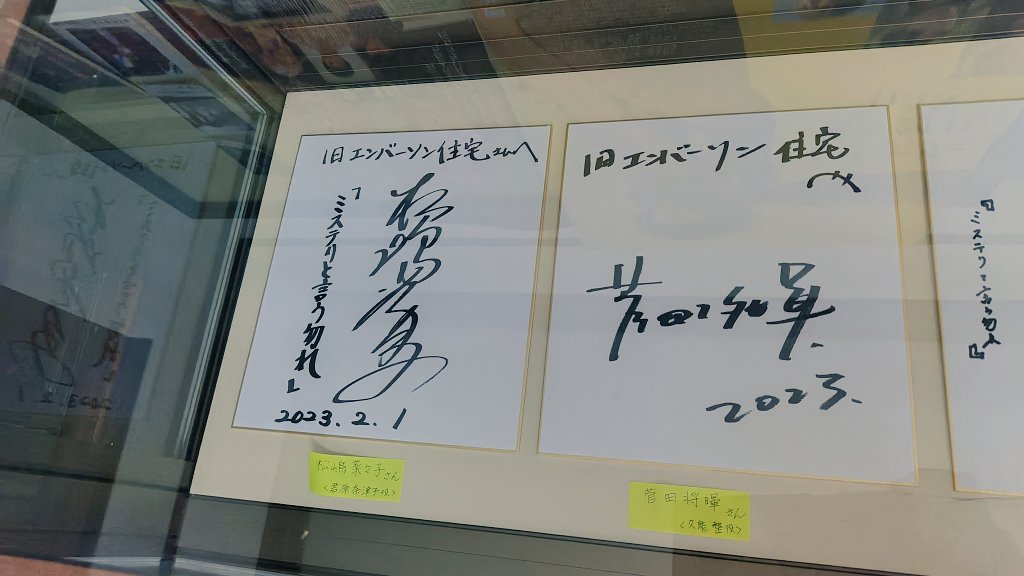 旧エンバーソン住宅さんへ
『ミステリと言う勿れ』
2023.2.1
松嶋菜々子さん
<君原奈津子役>
旧エンバーソン住宅
へ
菅田将暉
2023.
菅田将暉さん
<久能整役>
『ミステリと言う勿れ』